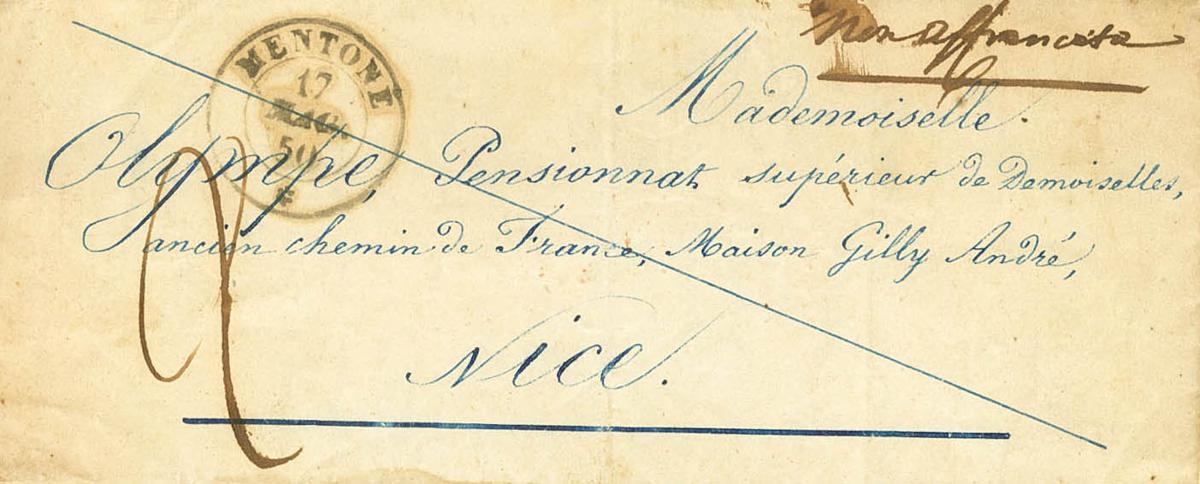 Non affrancata
MENTONE
17
MAG
50
Mademoiselle.
Olympe, Pensionnat supérieur de Demoiselles,
ancien chemin de France, Maison Gilly André,
Nice.